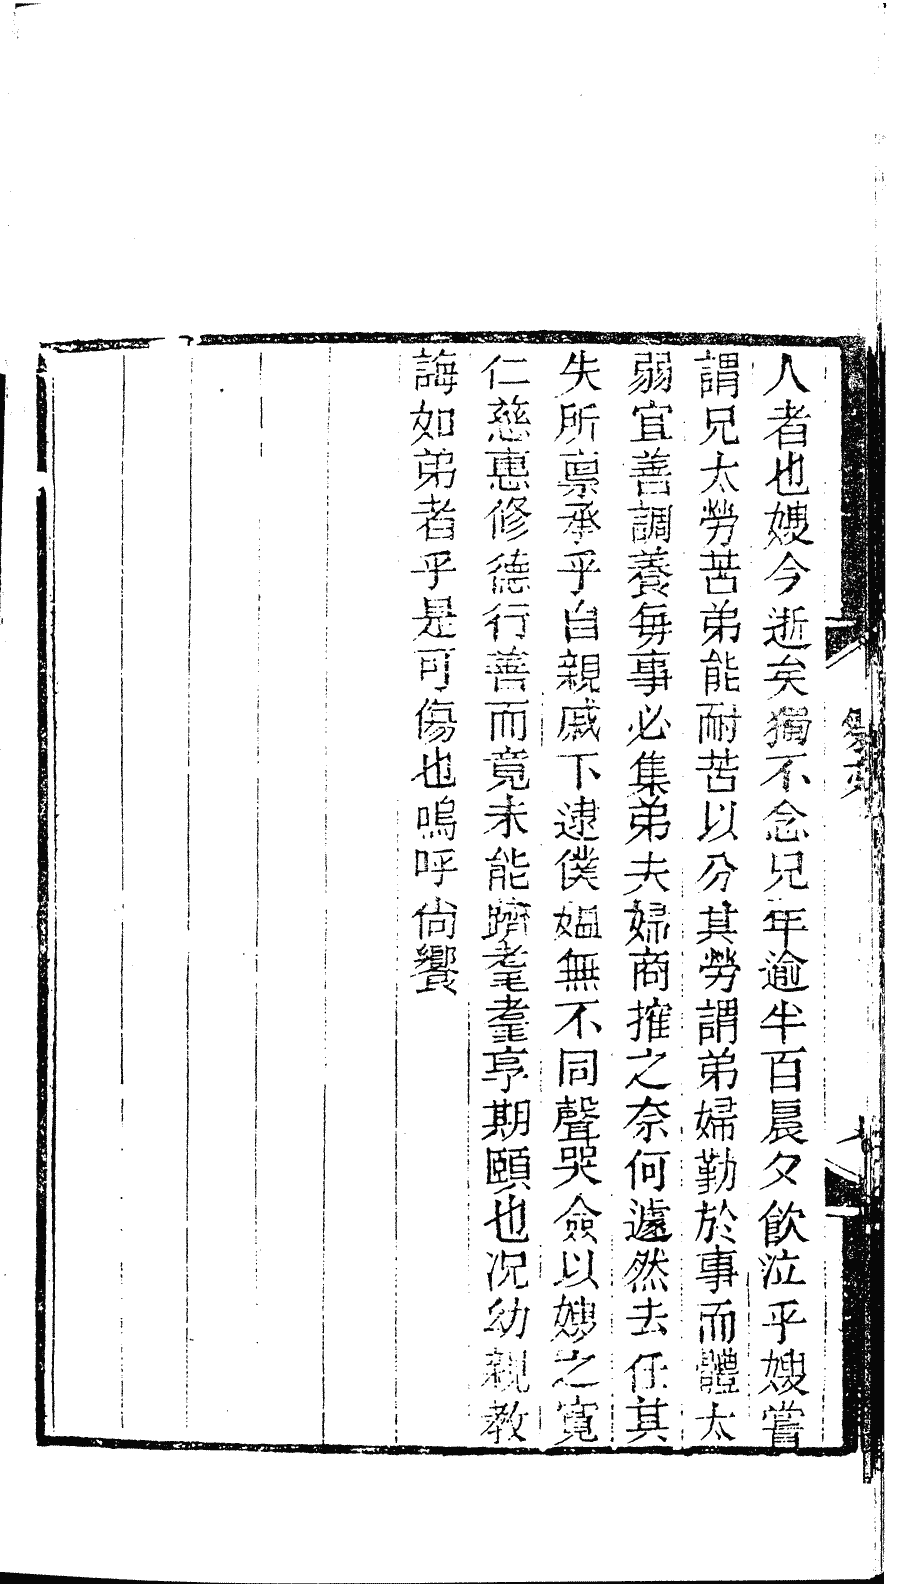 人者也嫂今逝矣獨不念兄年逾半百晨夕飲泣乎嫂嘗
謂兄太勞苦弟能耐苦以分其勞謂弟婦勤於事而體太
弱宜善調養每事必集弟夫婦商搉之奈何遽然去任其
失所禀承乎自親戚下逮僕媼無不同聲哭僉以嫂之寬
仁慈惠修德行善而竟未能躋耄耋享期頤也况幼親教
誨如弟者乎是可傷也嗚呼尙饗